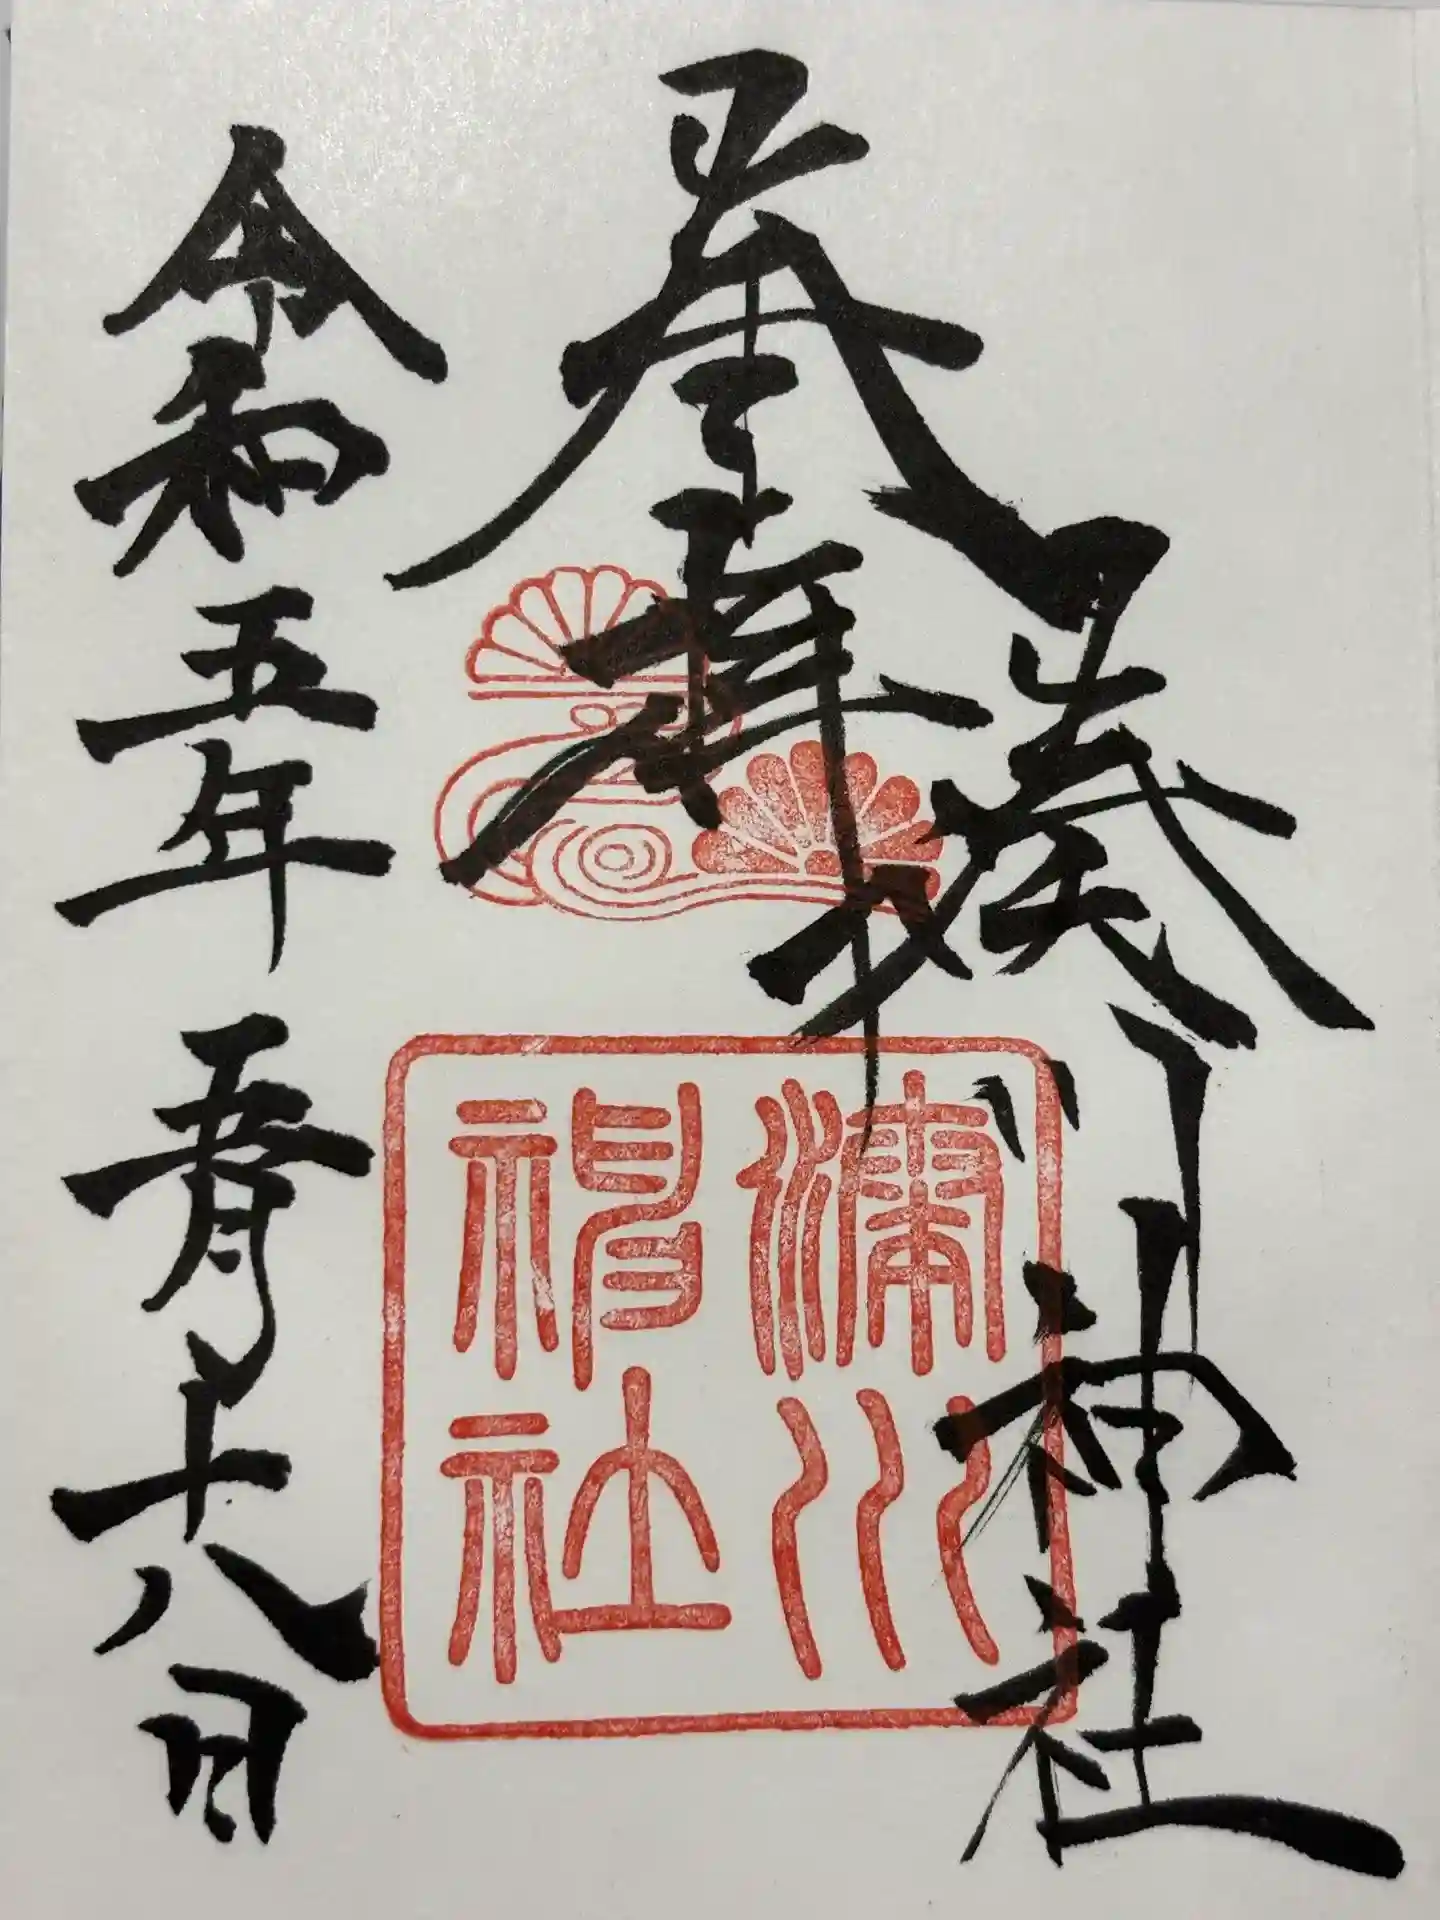 湊川神社
奉拝
令和五年五月十八日
湊川
神社